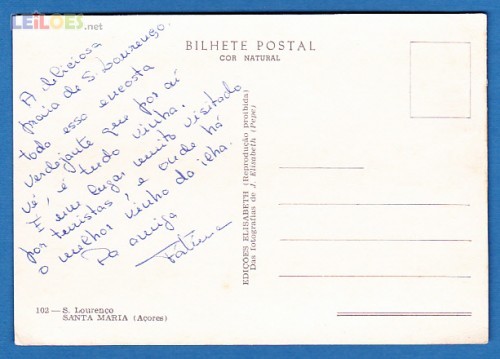 LEILOES.net
A deliciosa
praia de S. Lourenço.
todo esso encosta
verdejante que por aí
vê, é tudo vinha.
É um lugar muito visitado
por turistas, e onde há
o melhor vinho da ilha.
Da amiga
Fátima
102 — S. Lourenço
SANTA MARIA (Açores)
EDIÇÕES ELISABETH (Reprodução proibida)
Das fotografias de J. Elizabeth (Pepe)
BILHETE POSTAL
COR NATURAL